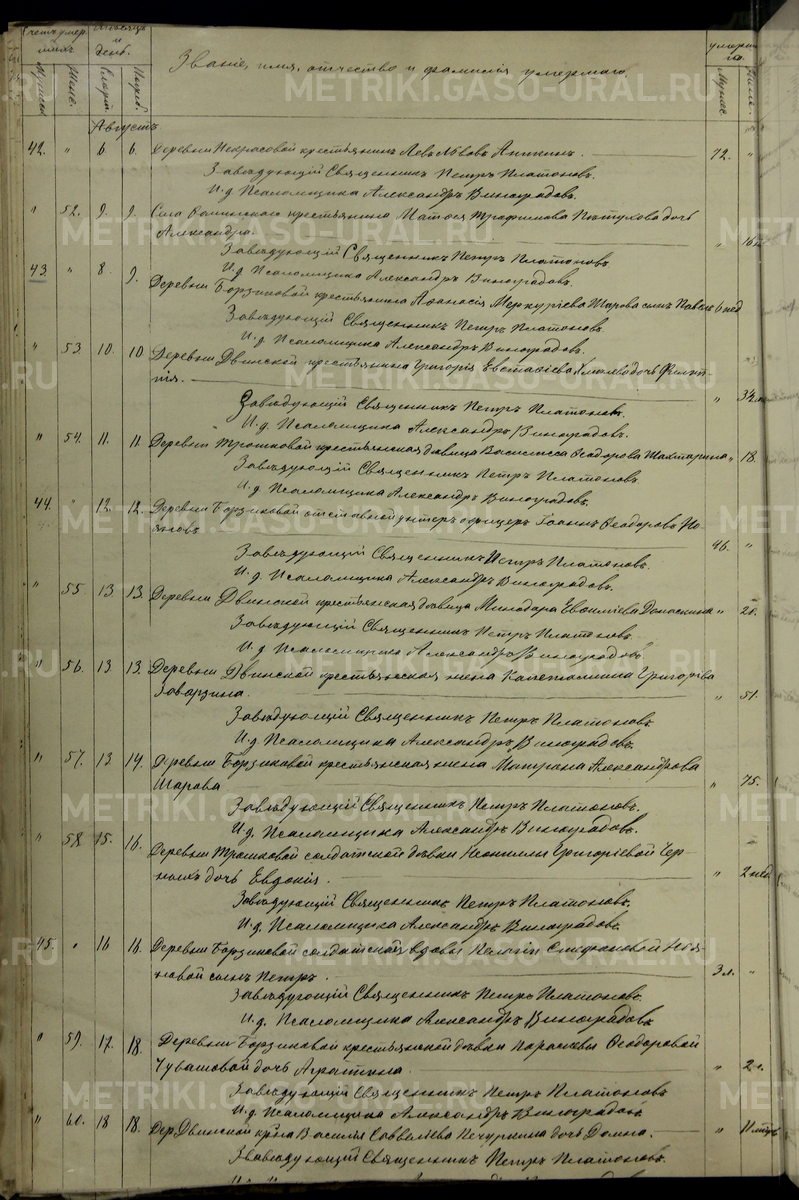 Счетъ умер-
шихъ
Мѣсяцъ
и
день.
Званіе, имя, отчество и фамилія умершаго.
Август
42. " 6. 6. Деревни Некрасовой крестьянин Левъ Львовъ Аникин. 72. "
Завѣдующій Священникъ Петръ Платоновъ.
И.д. Псаломщика Александръ Виноградовъ.
" 52. 9. 9. Села крестьянина Матвея Трафимова Пѣтухова дочь
Александра.
Завѣдующій Священникъ Петръ Платоновъ.
И.д. Псаломщика Александръ Виноградовъ.
43. " 8. 9. Деревни Борзиковой крестьянина Аѳанасія Меркуріева Шарова сынъ Павелъ 6 нед
Завѣдующій Священникъ Петръ Платоновъ.
И.д. Псаломщика Александръ Виноградовъ.
" 53. 10. 10 Деревни Двинской крестьянина Григорія Евстаѳіева дочь
Завѣдующій Священникъ Петръ Платоновъ.
И.д. Псаломщика Александръ Виноградовъ.
" 54. 11. 11 Деревни Трошковой крестьянская дѣвица Василисса Ѳеодорова Шахмарина " 18.
Завѣдующій Священникъ Петръ Платоновъ
И.д. Псаломщика Александръ Виноградовъ.
44. " 12. 12. Деревни Борзиковой отставной унтеръ офицеръ Іоаннъ Ѳеодоровъ
46. "
Завѣдующій Священникъ Петръ Платоновъ.
И.д. Псаломщика Александръ Виноградовъ.
" 55. 13 13. Деревни Двинской крестьянская дѣвица Минодара Евѳиміева " 20.
Завѣдующій Священникъ Петръ Платоновъ.
И.д. Псаломщика Александръ Виноградовъ.
" 56. 13 13. Деревни Двинской крестьянская жена Капетолина Григоріева
Заварзина. " 51.
Завѣдующій Священникъ Петръ Платоновъ.
И.д. Псаломщика Александръ Виноградовъ.
" 57. 13 14. Деревни Борзиковой крестьянская жена Матрона Александрова
Шарова " 75.
Завѣдующій Священникъ Петръ Платоновъ.
И.д. Псаломщика Александръ Виноградовъ.
" 58. 15. 16. Деревни Трошковой солдатской дѣвки Неониллы Григоріевой Чер-
ныхъ дочь Евдокія. " 2 нед
Завѣдующій Священникъ Петръ Платоновъ.
И.д. Псаломщика Александръ Виноградовъ.
45. " 16 16. Деревни Борзиковой солдатской вдовы Пелагіи Стефановой
сынъ Петръ. 3 м. "
Завѣдующій Священникъ Петръ Платоновъ.
И.д. Псаломщика Александръ Виноградовъ
" 59. 17. 18. Деревни Борзиковой крестьянской дѣвки Параскевы Ѳеодоровой
Чувашовой дочь Агриппина. " 2 г.
Завѣдующій Священникъ Петръ Платоновъ
И.д. Псаломщика Александръ Виноградовъ
" 60. 18 18. Дер. Двинской кр-на Василія Савватіева Печуркина дочь Домна. "
Завѣдующій Священникъ Петръ Платоновъ.
METRIKI.GASO-URAL.RU